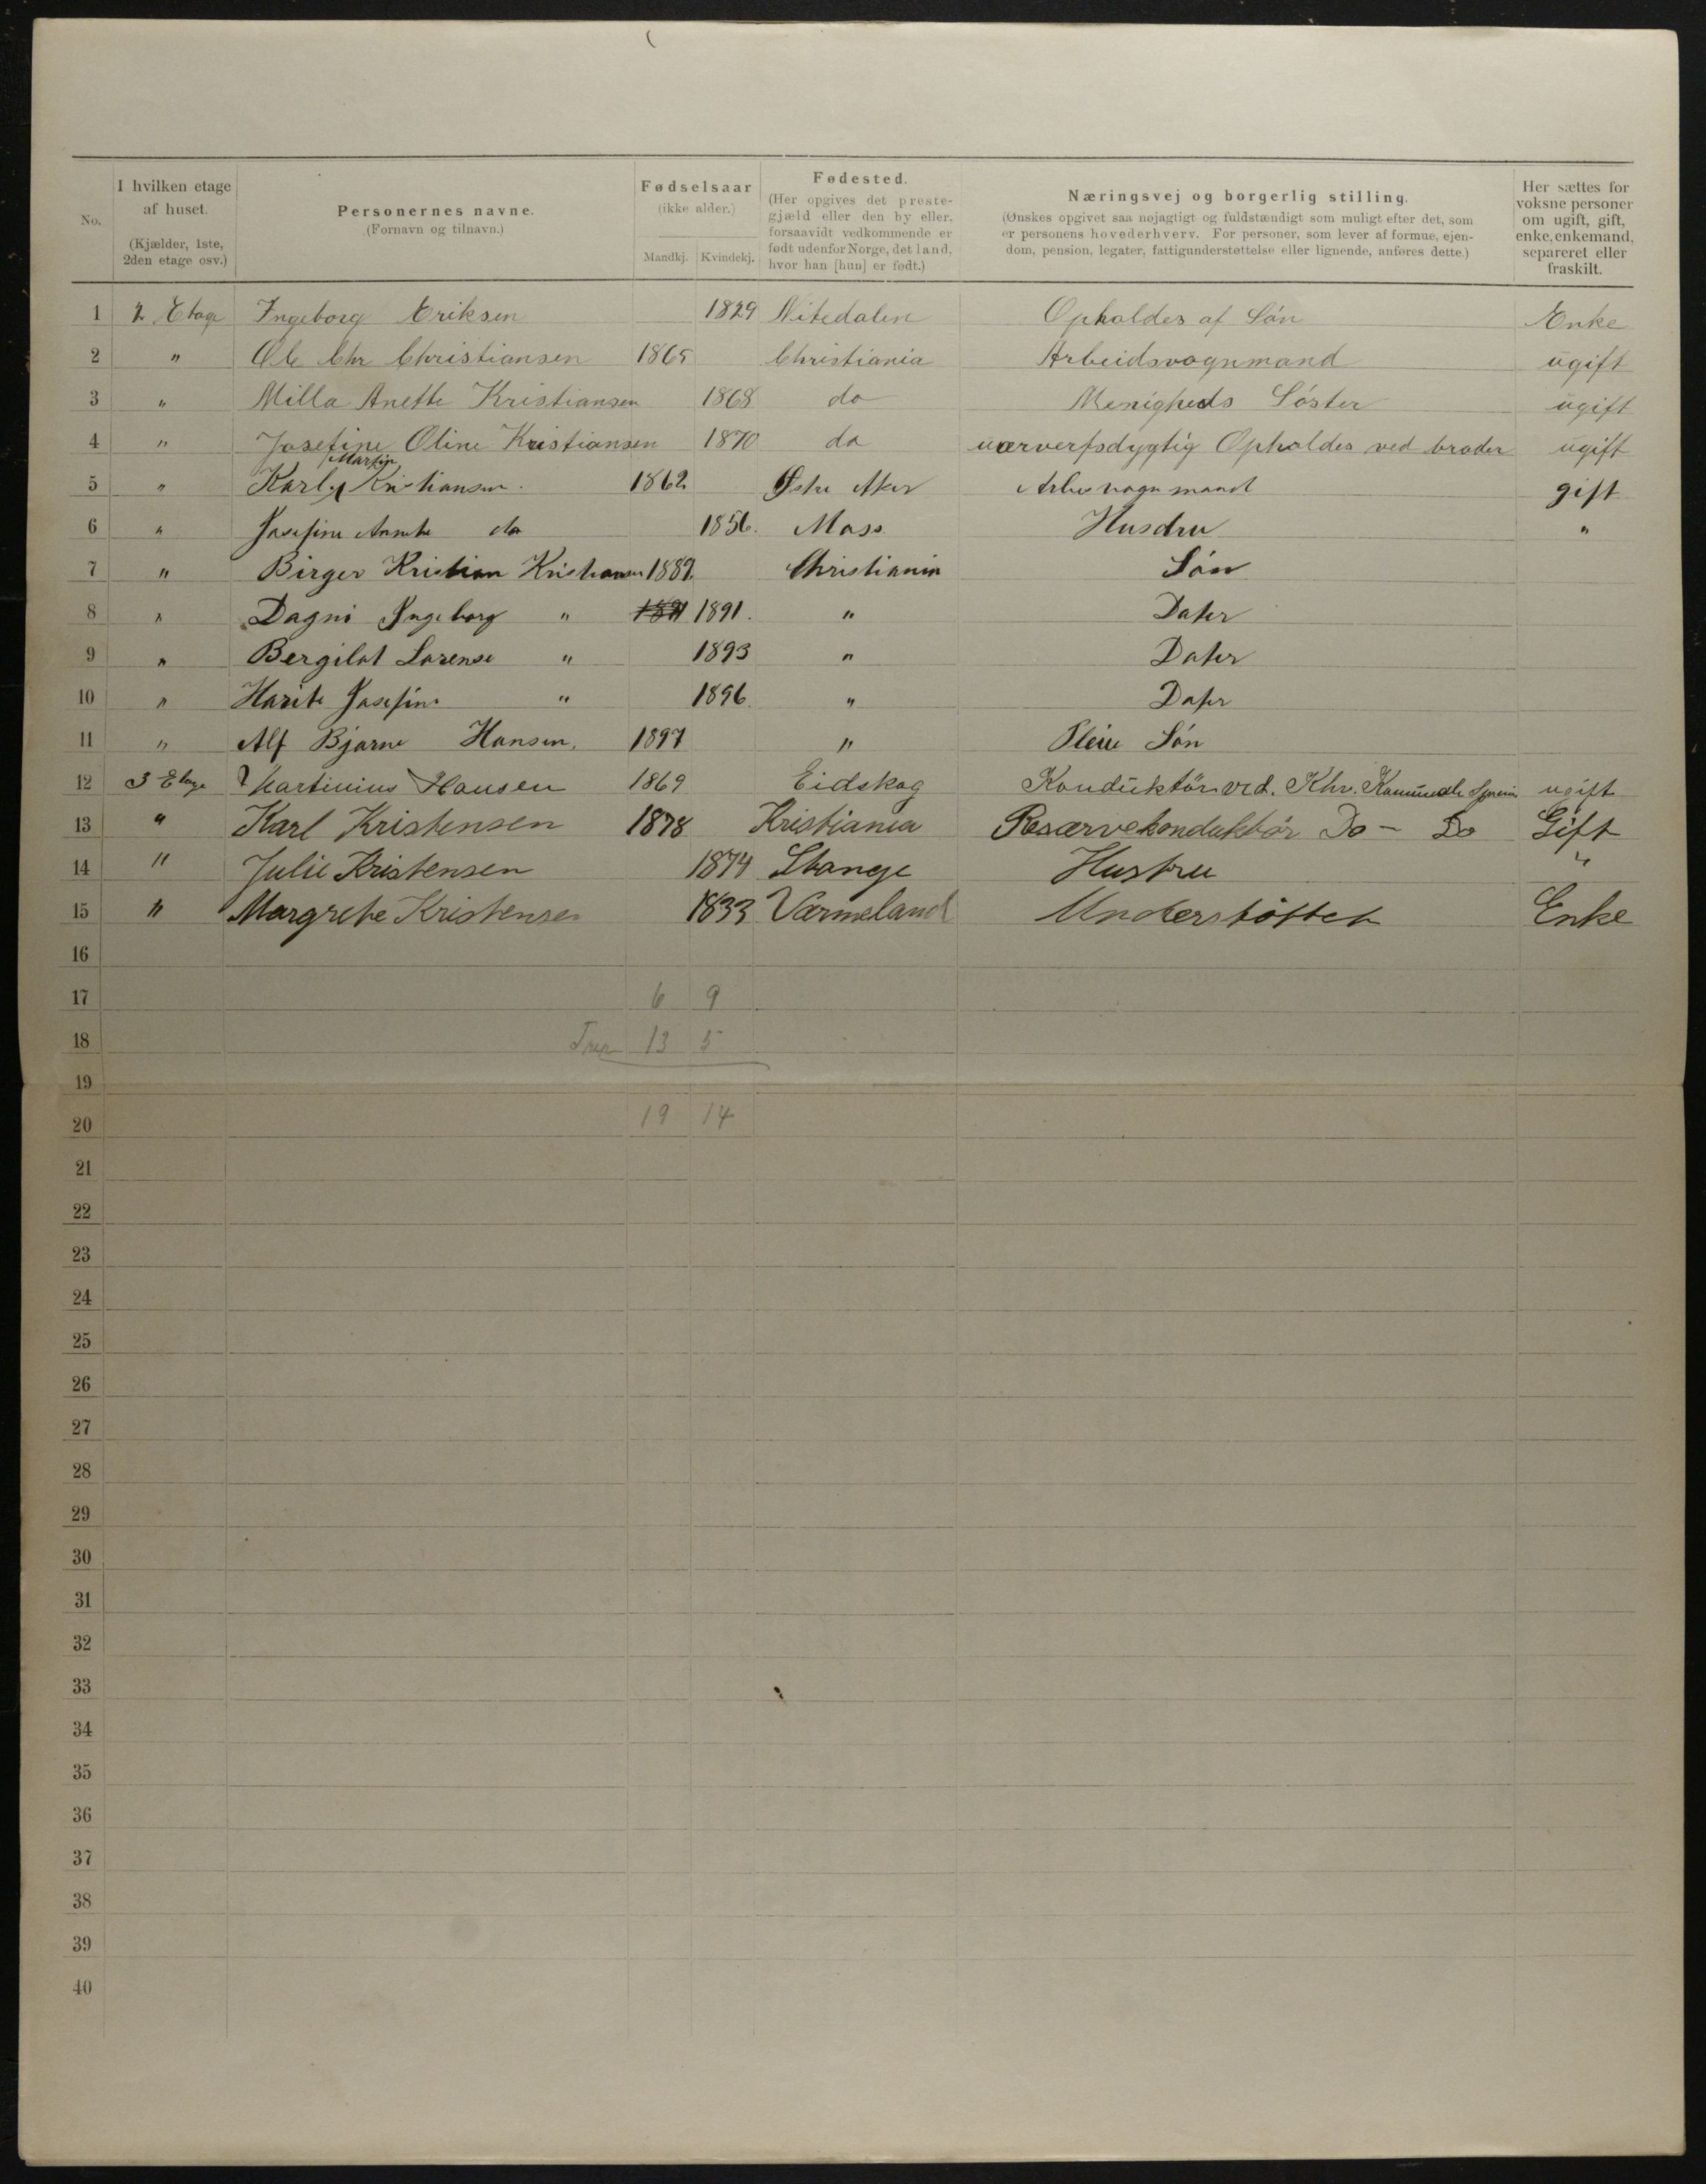 No. I hvilken etage af huset. (Kjælder, 1ste, 2den etage osv.) Personernes navne. (Fornavn og tilnavn.) Fødselsaar (ikke alder.) Mandkj. Kvindekj. Fødested. (Her opgives det prestegjæld eller den by eller, forsaavidt vedkommende er født udenfor Norge, det land, hvor han [hun] er født.) Næringsvej og borgerlig stilling. (Ønskes opgivet saa nøjagtigt og fuldstændigt som muligt efter det, som er personens hovederhverv. For personer, som lever af formue, ejendom, pension, legater, fattigunderstøttelse eller lignende, anføres dette.) Her sættes for voksne personer om ugift, gift, enke, enkemand, separeret eller fraskilt.
1 2 Etage Ingeborg Eriksen 1829 Nitedalen Opholdes af Sön Enke
2 " Ole Chr Christiansen 1865 Christiania Arbeidsvognmand ugift
3 " Milla Anette Kristiansen 1868 do Menigheds Söster ugift
4 " Josefine Oline Kristiansen 1870 do uærverfsdygtig Opholdes ved broder ugift
5 " Karl Martin Kristiansen. 1862 Østre Aker Arbeisvognmand gift
6 " Josefine Annete do 1856. Moss Husdru "
7 " Birger Kristian Kristiansen 1889. Christiania Sön
8 " Dagni Ingeborg " 1891 1891. " Dater
9 " Bergilot Lorense " 1893 " Dater
10 " Harite Josefine " 1896. " Dater
11 " Alf Bjarne Hansen, 1897 " Pleie Sön
12 3 Etage Martinius Hansen 1869 Eidskog Konduktör ved. Khr. Komunale Sporvei ugift
13 " Karl Kristensen 1878 Kristiania Resærvekonduktör Do - Do Gift
14 " Julie Kristensen 1874 Stange Hustru "
15 " Margrete Kristensen 1833 Värmeland Understöttet Enke
16
17 6 9
18 13 5
19
20 19 14
21
22
23
24
25
26
27
28
29
30
31
32
33
34
35
36
37
38
39
40